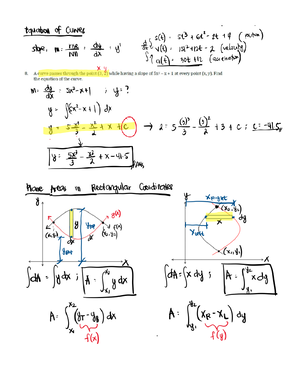 Equation of Curves
slope, m = rise/run = dy/dx = y'
s(t) = 5t³ + 6t² - 2t + 9
v(t) = 15t² + 12t - 2 (velocity)
a(t) = 30t + 12 (acceleration)
x y
A curve passes through the point (3, 2) while having a slope of 5x² – x + 1 at every point (x, y). Find
the equation of the curve.
m = dy/dx = 5x² - x + 1 ; y = ?
y = ∫(5x² - x + 1) dx
y = 5x³/3 - x²/2 + x + C → 2 = 5(3)³/3 - (3)²/2 + 3 + C ; C = -41.5
y = 5x³/3 - x²/2 + x - 41.5
Plane Areas in Rectangular Coordinates
y
y
X right
(x₂, y₂)
g(x)
(x₁, y₁)
(x₂, y₂)
y
dx
x
dy
X left
(x₁, y₁)
x
x
∫dA = ∫y dx ; A = ∫ₓ₁ˣ² y dx
∫dA = ∫x dy ; A = ∫y₁y² x dy
A = ∫ₓ₁ˣ² (yT - yB) dx
f(x)
A = ∫y₁y² (xR - xL) dy
f(y)